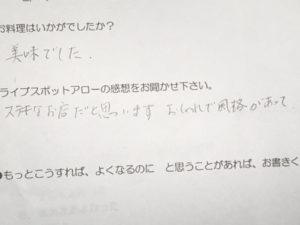 お料理はいかがでしたか？
美味でした.
ライブスポットアローの感想をお聞かせ下さい。
ステキなお店だと思います おしゃれで風格があって
●もっとこうすれば、よくなるのに と思うことがあれば、お書きく